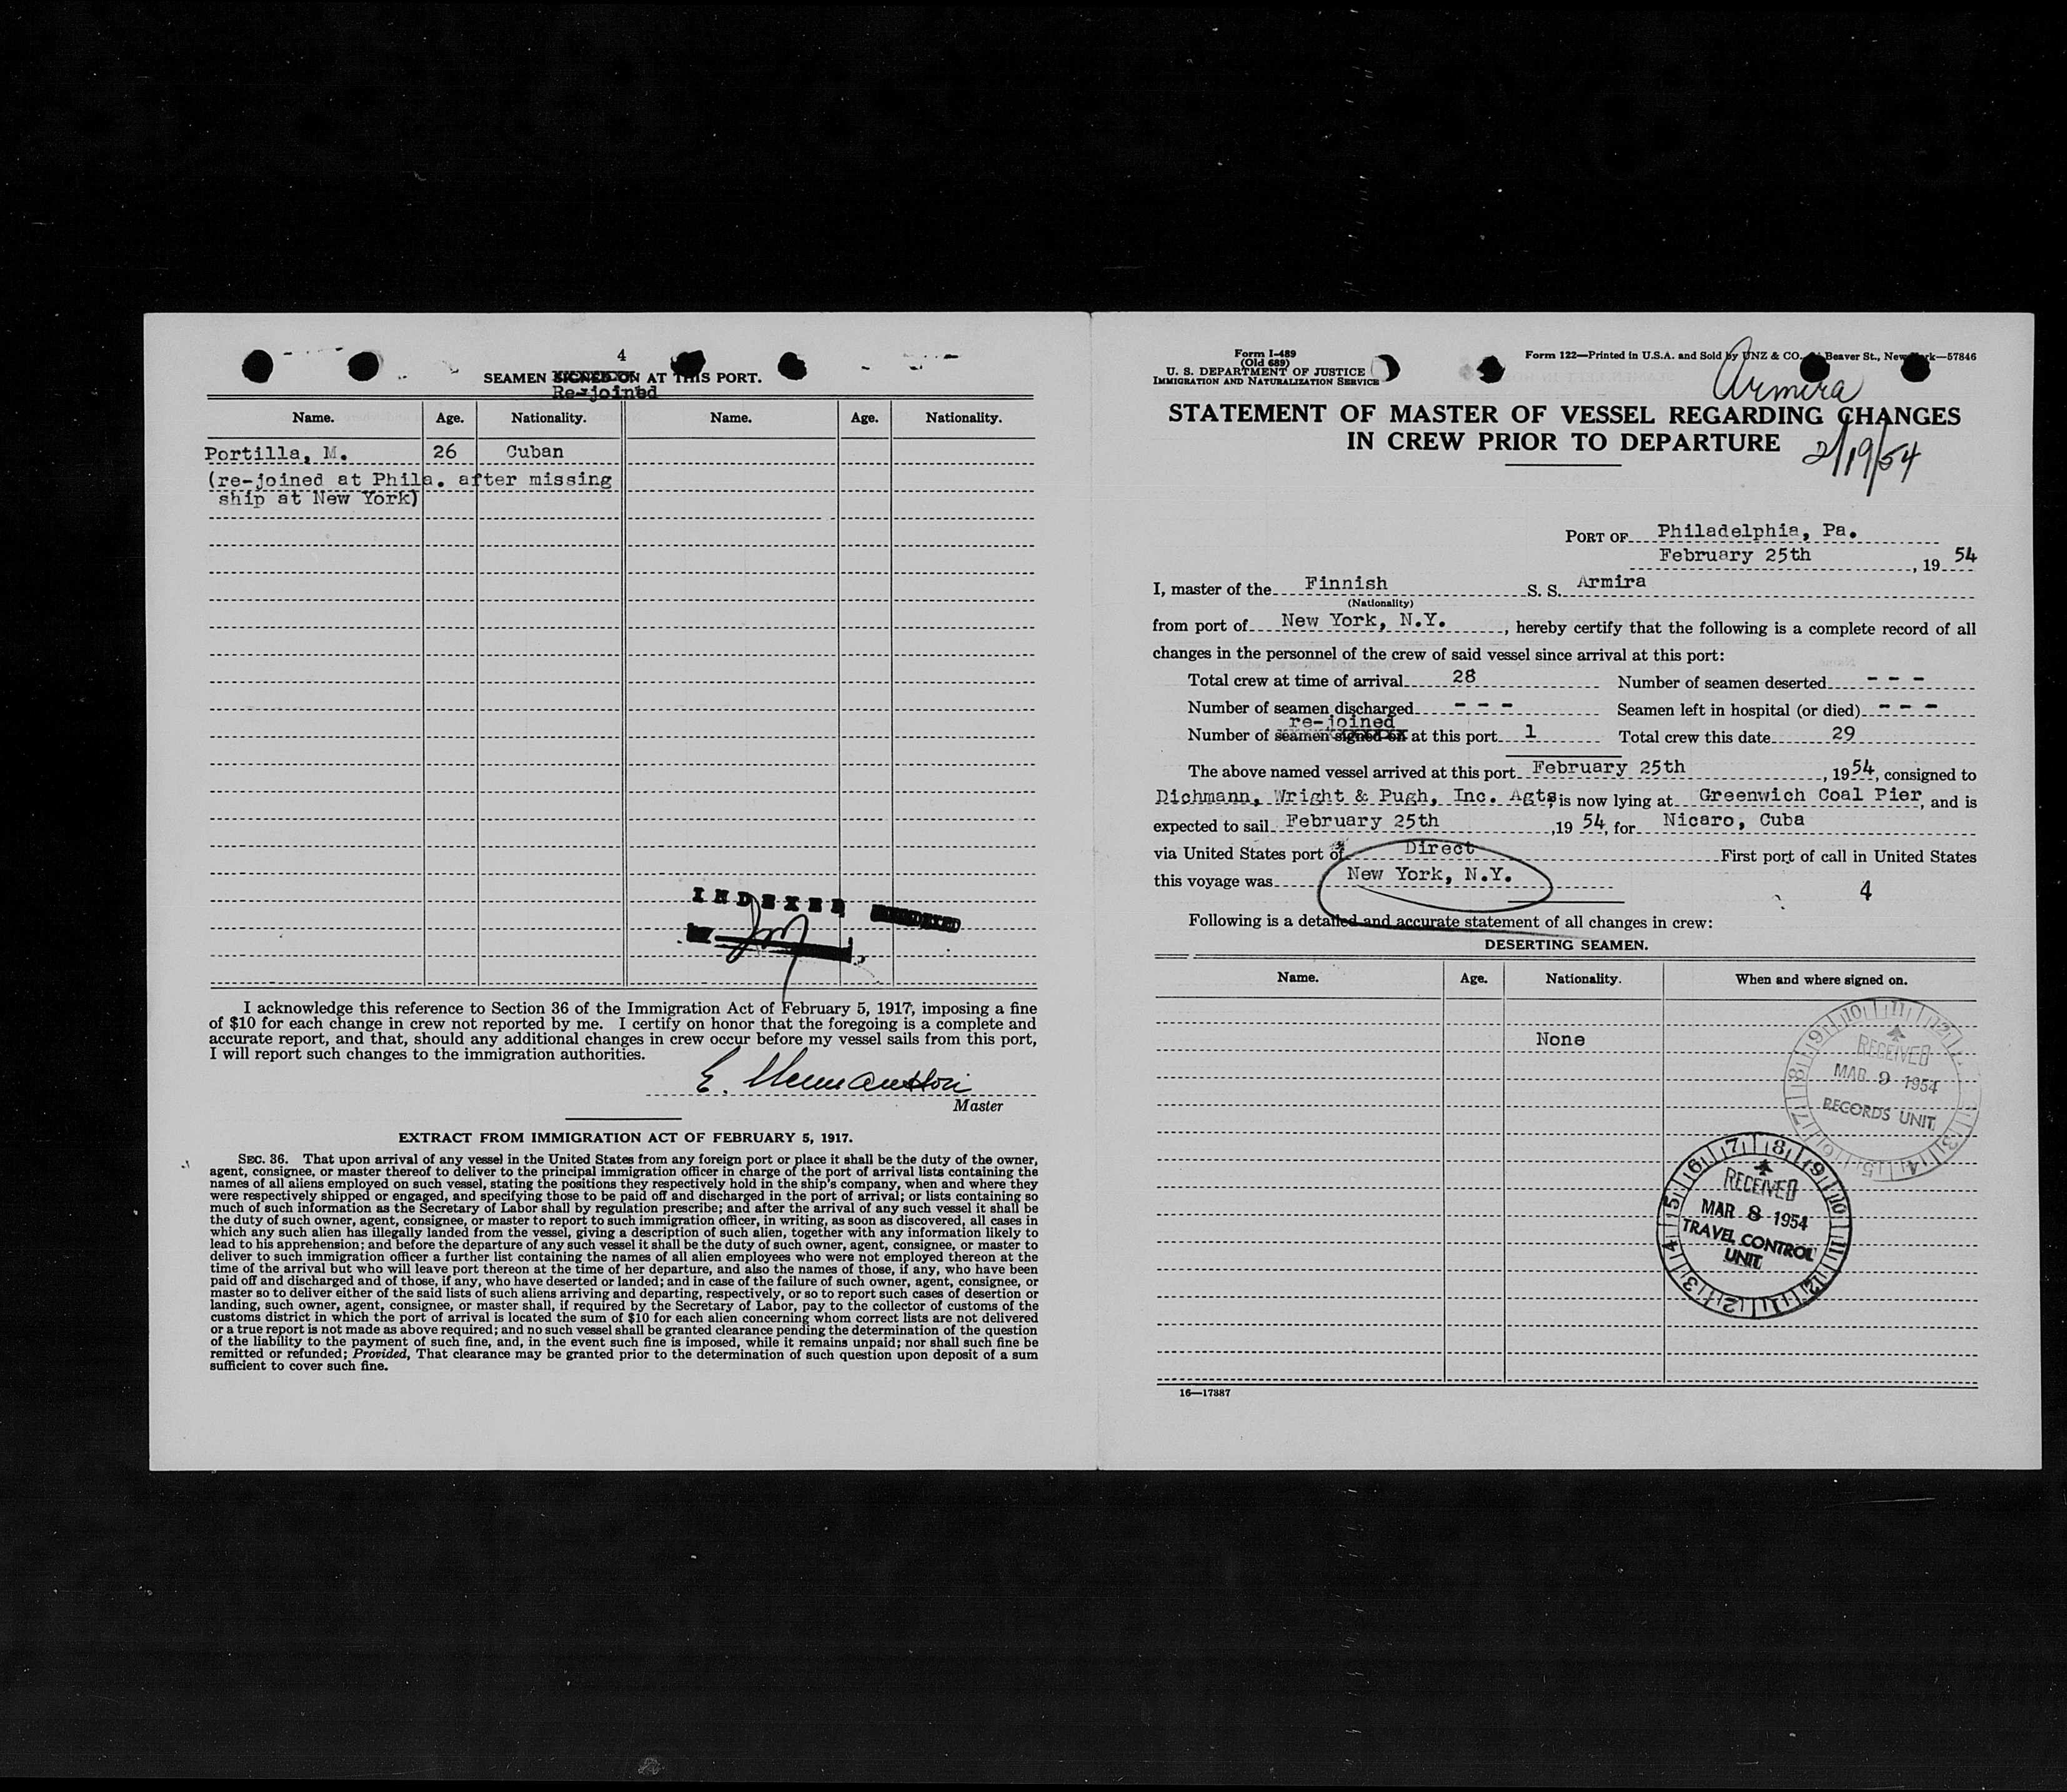 4
SEAMEN SIGNED ON AT THIS PORT.
Re-joined
Name. Age. Nationality. Name. Age. Nationality.
Portilla, M. 26 Cuban
(re-joined at Phila. after missing
ship at New York)
INDEXED
I acknowledge this reference to Section 36 of the Immigration Act of February 5, 1917, imposing a fine
of $10 for each change in crew not reported by me. I certify on honor that the foregoing is a complete and
accurate report, and that, should any additional changes in crew occur before my vessel sails from this port,
I will report such changes to the immigration authorities.
E. Hermansson
Master
EXTRACT FROM IMMIGRATION ACT OF FEBRUARY 5, 1917.
SEC. 36. That upon arrival of any vessel in the United States from any foreign port or place it shall be the duty of the owner,
agent, consignee, or master thereof to deliver to the principal immigration officer in charge of the port of arrival lists containing the
names of all aliens employed on such vessel, stating the positions they respectively hold in the ship's company, when and where they
were respectively shipped or engaged, and specifying those to be paid off and discharged in the port of arrival; or lists containing so
much of such information as the Secretary of Labor shall by regulation prescribe; and after the arrival of any such vessel it shall be
the duty of such owner, agent, consignee, or master to report to such immigration officer, in writing, as soon as discovered, all cases in
which any such alien has illegally landed from the vessel, giving a description of such alien, together with any information likely to
lead to his apprehension; and before the departure of any such vessel it shall be the duty of such owner, agent, consignee, or master to
deliver to such immigration officer a further list containing the names of all alien employees who were not employed thereon at the
time of the arrival but who will leave port thereon at the time of her departure, and also the names of those, if any, who have been
paid off and discharged and of those, if any, who have deserted or landed; and in case of the failure of such owner, agent, consignee, or
master so to deliver either of the said lists of such aliens arriving and departing, respectively, or so to report such cases of desertion or
landing, such owner, agent, consignee, or master shall, if required by the Secretary of Labor, pay to the collector of customs of the
customs district in which the port of arrival is located the sum of $10 for each alien concerning whom correct lists are not delivered
or a true report is not made as above required; and no such vessel shall be granted clearance pending the determination of the question
of the liability to the payment of such fine, and, in the event such fine is imposed, while it remains unpaid; nor shall such fine be
remitted or refunded; Provided, That clearance may be granted prior to the determination of such question upon deposit of a sum
sufficient to cover such fine.
Form I-489
(Old 689)
U. S. DEPARTMENT OF JUSTICE
IMMIGRATION AND NATURALIZATION SERVICE
Form 122—Printed in U.S.A. and Sold by UNZ & CO. Beaver St., New York—57846
Armira
STATEMENT OF MASTER OF VESSEL REGARDING CHANGES
IN CREW PRIOR TO DEPARTURE
2/19/54
PORT OF Philadelphia, Pa.
February 25th, 19 54
I, master of the Finnish S. S. Armira
(Nationality)
from port of New York, N.Y., hereby certify that the following is a complete record of all
changes in the personnel of the crew of said vessel since arrival at this port:
Total crew at time of arrival 28 Number of seamen deserted - - -
Number of seamen discharged - - - Seamen left in hospital (or died) - - -
re-joined
Number of seamen signed on at this port 1 Total crew this date 29
The above named vessel arrived at this port February 25th, 1954, consigned to
Dichmann, Wright & Pugh, Inc. Agts, is now lying at Greenwich Coal Pier, and is
expected to sail February 25th, 19 54, for Nicaro, Cuba
via United States port of Direct First port of call in United States
this voyage was New York, N.Y.
4
Following is a detailed and accurate statement of all changes in crew:
DESERTING SEAMEN.
Name. Age. Nationality. When and where signed on.
None
RECEIVED
MAR 9 1954
RECORDS UNIT
RECEIVED
MAR 8 1954
TRAVEL CONTROL
UNIT
16—17887